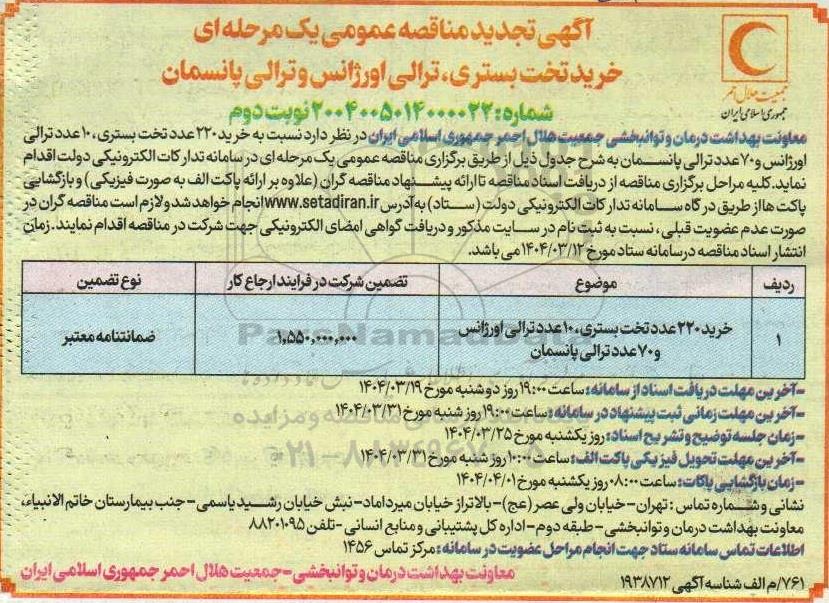 آگهی تجدید مناقصه عمومی یک مرحله ای
خرید تخت بستری، ترالی اورژانس و ترالی پانسمان
شماره: ۲۰۰۴۰۰۵۰۱۴۰۰۰۰۲۲ نوبت دوم
جمعیت هلال احمر
جمهوری اسلامی ایران
معاونت بهداشت درمان و توانبخشی جمعیت هلال احمر جمهوری اسلامی ایران در نظر دارد نسبت به خرید ۲۲۰ عدد تخت بستری، ۱۰ عدد ترالی
اورژانس و ۷۰ عدد ترالی پانسمان به شرح جدول ذیل از طریق برگزاری مناقصه عمومی یک مرحله ای در سامانه تدارکات الکترونیکی دولت اقدام
نماید. کلیه مراحل برگزاری مناقصه از دریافت اسناد مناقصه تا ارائه پیشنهاد مناقصه گران (علاوه بر ارائه پاکت الف به صورت فیزیکی) و بازگشایی
پاکت ها از طریق درگاه سامانه تدارکات الکترونیکی دولت (ستاد) به آدرس www.setadiran.ir انجام خواهد شد و لازم است مناقصه گران در
صورت عدم عضویت قبلی، نسبت به ثبت نام در سایت مذکور و دریافت گواهی امضای الکترونیکی جهت شرکت در مناقصه اقدام نمایند. زمان
انتشار اسناد مناقصه در سامانه ستاد مورخ ۱۴۰۴/۰۳/۱۲ می باشد.
ردیف موضوع تضمین شرکت در فرایند ارجاع کار نوع تضمین
۱ خرید ۲۲۰ عدد تخت بستری، ۱۰ عدد ترالی اورژانس ۱,۵۵۰,۰۰۰,۰۰۰ ضمانتنامه معتبر
و ۷۰ عدد ترالی پانسمان
ParsNamadData
-آخرین مهلت دریافت اسناد از سامانه: ساعت ۱۹:۰۰ روز دوشنبه مورخ ۱۴۰۴/۰۳/۱۹
-آخرین مهلت زمانی ثبت پیشنهاد در سامانه: ساعت ۱۹:۰۰ روز شنبه مورخ ۱۴۰۴/۰۳/۳۱
-زمان جلسه توضیح و تشریح اسناد: روز یکشنبه مورخ ۱۴۰۴/۰۳/۲۵
-آخرین مهلت تحویل فیزیکی پاکت الف: ساعت ۱۰:۰۰ روز شنبه مورخ ۱۴۰۴/۰۳/۳۱
-زمان بازگشایی پاکات: ساعت ۰۸:۰۰ روز یکشنبه مورخ ۱۴۰۴/۰۴/۰۱
نشانی و شماره تماس: تهران-خیابان ولی عصر (عج)-بالاتر از خیابان میرداماد-نبش خیابان رشید یاسمی-جنب بیمارستان خاتم الانبیاء،
معاونت بهداشت درمان و توانبخشی-طبقه دوم-اداره کل پشتیبانی و منابع انسانی-تلفن ۸۸۲۰۱۰۹۵
اطلاعات تماس سامانه ستاد جهت انجام مراحل عضویت در سامانه: مرکز تماس ۱۴۵۶
معاونت بهداشت درمان و توانبخشی-جمعیت هلال احمر جمهوری اسلامی ایران
۷۶۱/م الف شناسه آگهی ۱۹۳۸۷۱۲